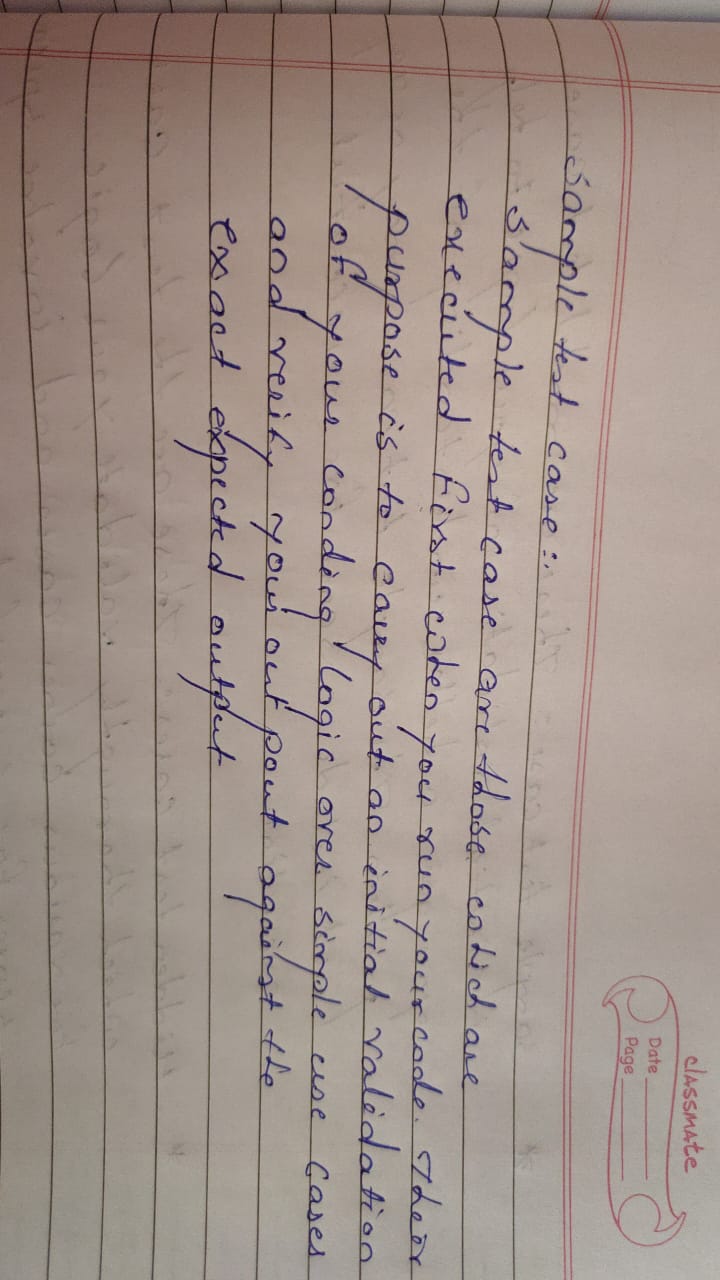 classmate
Date
Page
Sample test case :-
Sample test case are those which are
executed first when you run your code. Their
purpose is to carry out an initial validation
of your conding logic over simple use cases
and verify your out pout against the
exact expected output